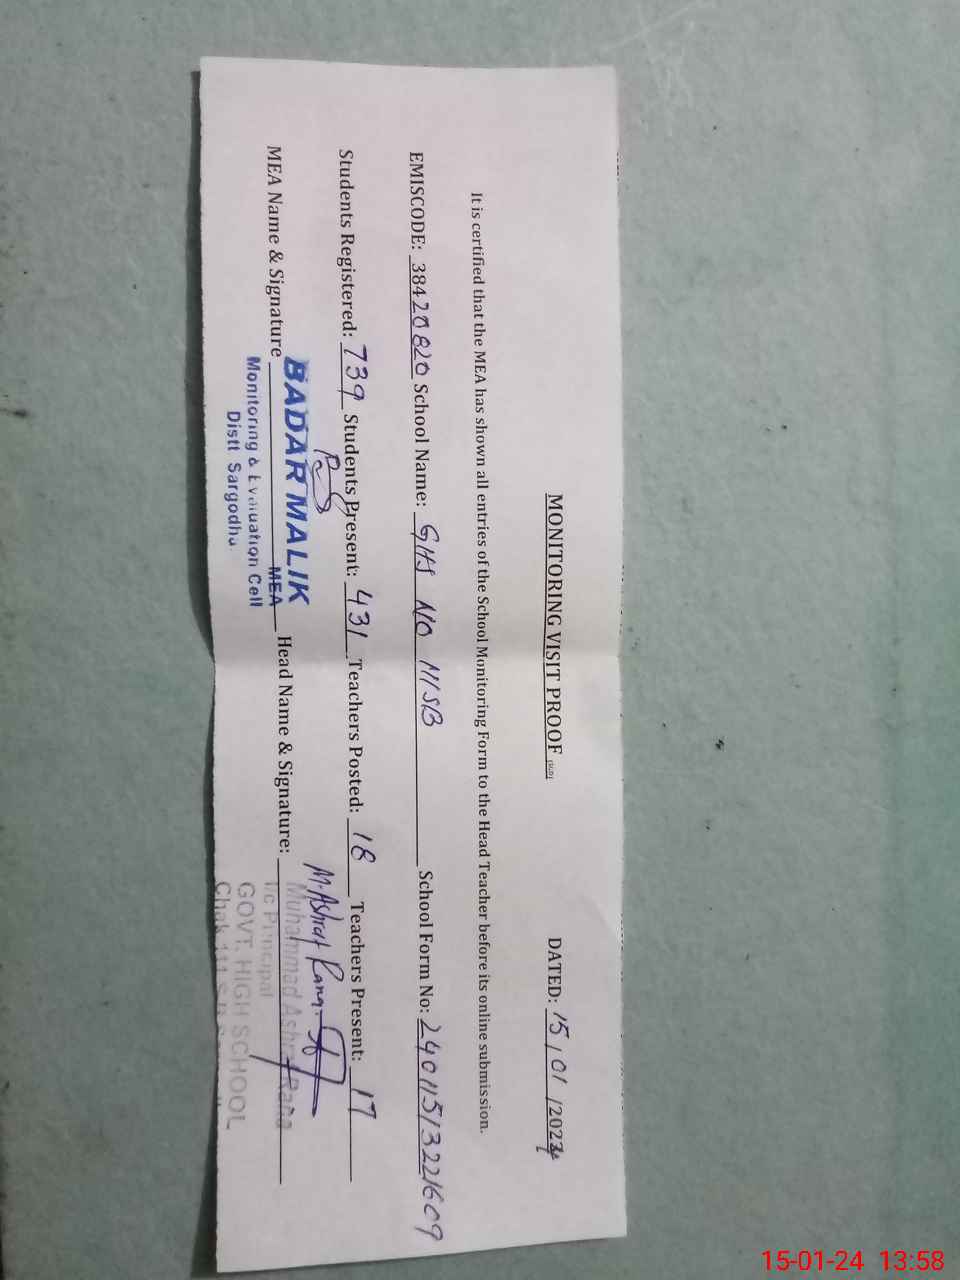 MONITORING VISIT PROOF DATED: 15/01/2024
It is certified that the MEA has shown all entries of the School Monitoring Form to the Head Teacher before its online submission.
EMISCODE: 38420820 School Name: GHS NO NISB School Form No: 24011513221609
Students Registered: 739 Students Present: 431 Teachers Posted: 18 Teachers Present: 17
MEA Name & Signature Head Name & Signature: M. Ashraf Rana
BADAR MALIK
MEA
Monitoring & Evaluation Cell
Distt Sargodha
Muhammad Ashraf Rana
I/c Principal
GOVT. HIGH SCHOOL
Chak 111 S.B
15-01-24 13:58